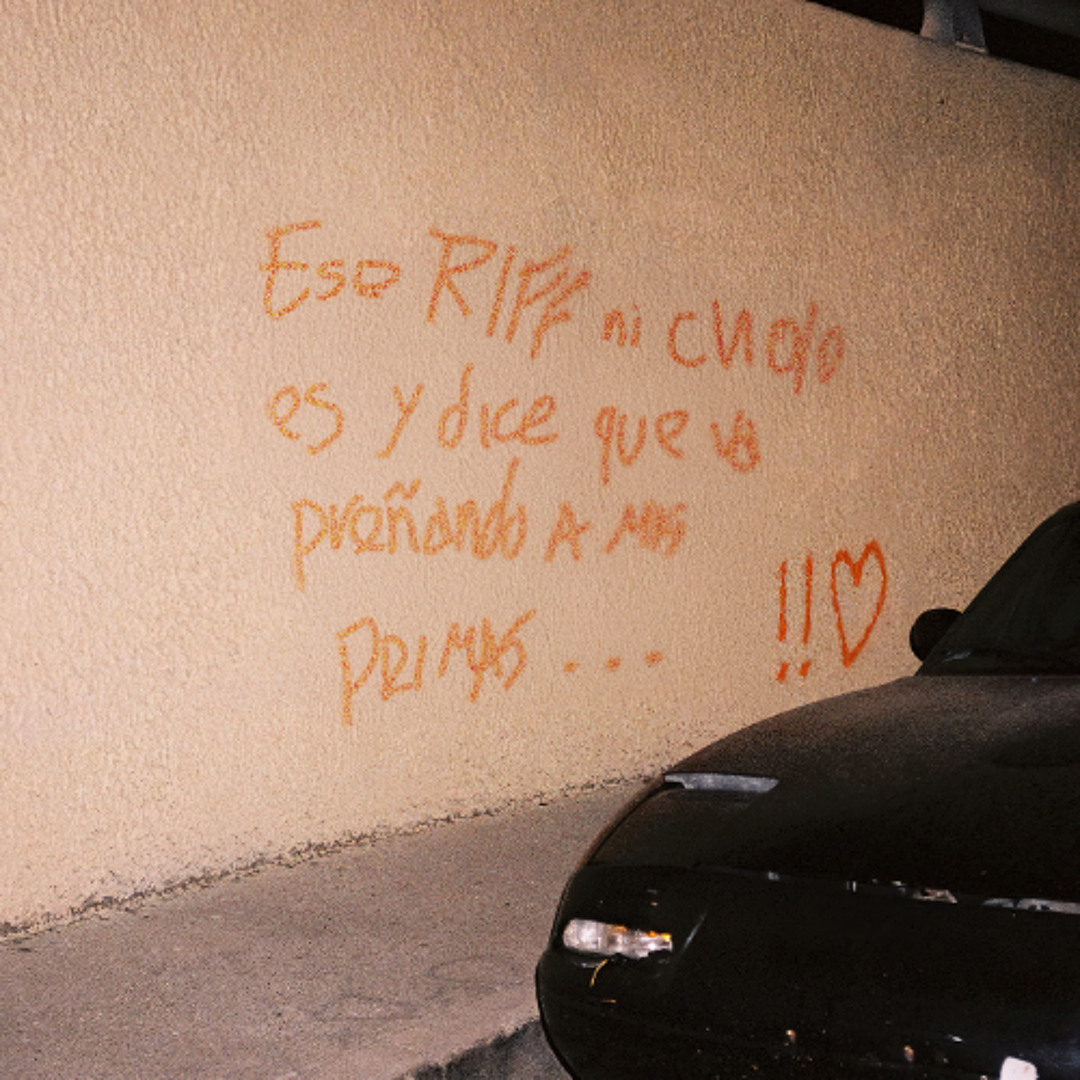 Eso RIFF ni cholo
es y dice que va
preñando A MAS
PRIMAS ... !!♡